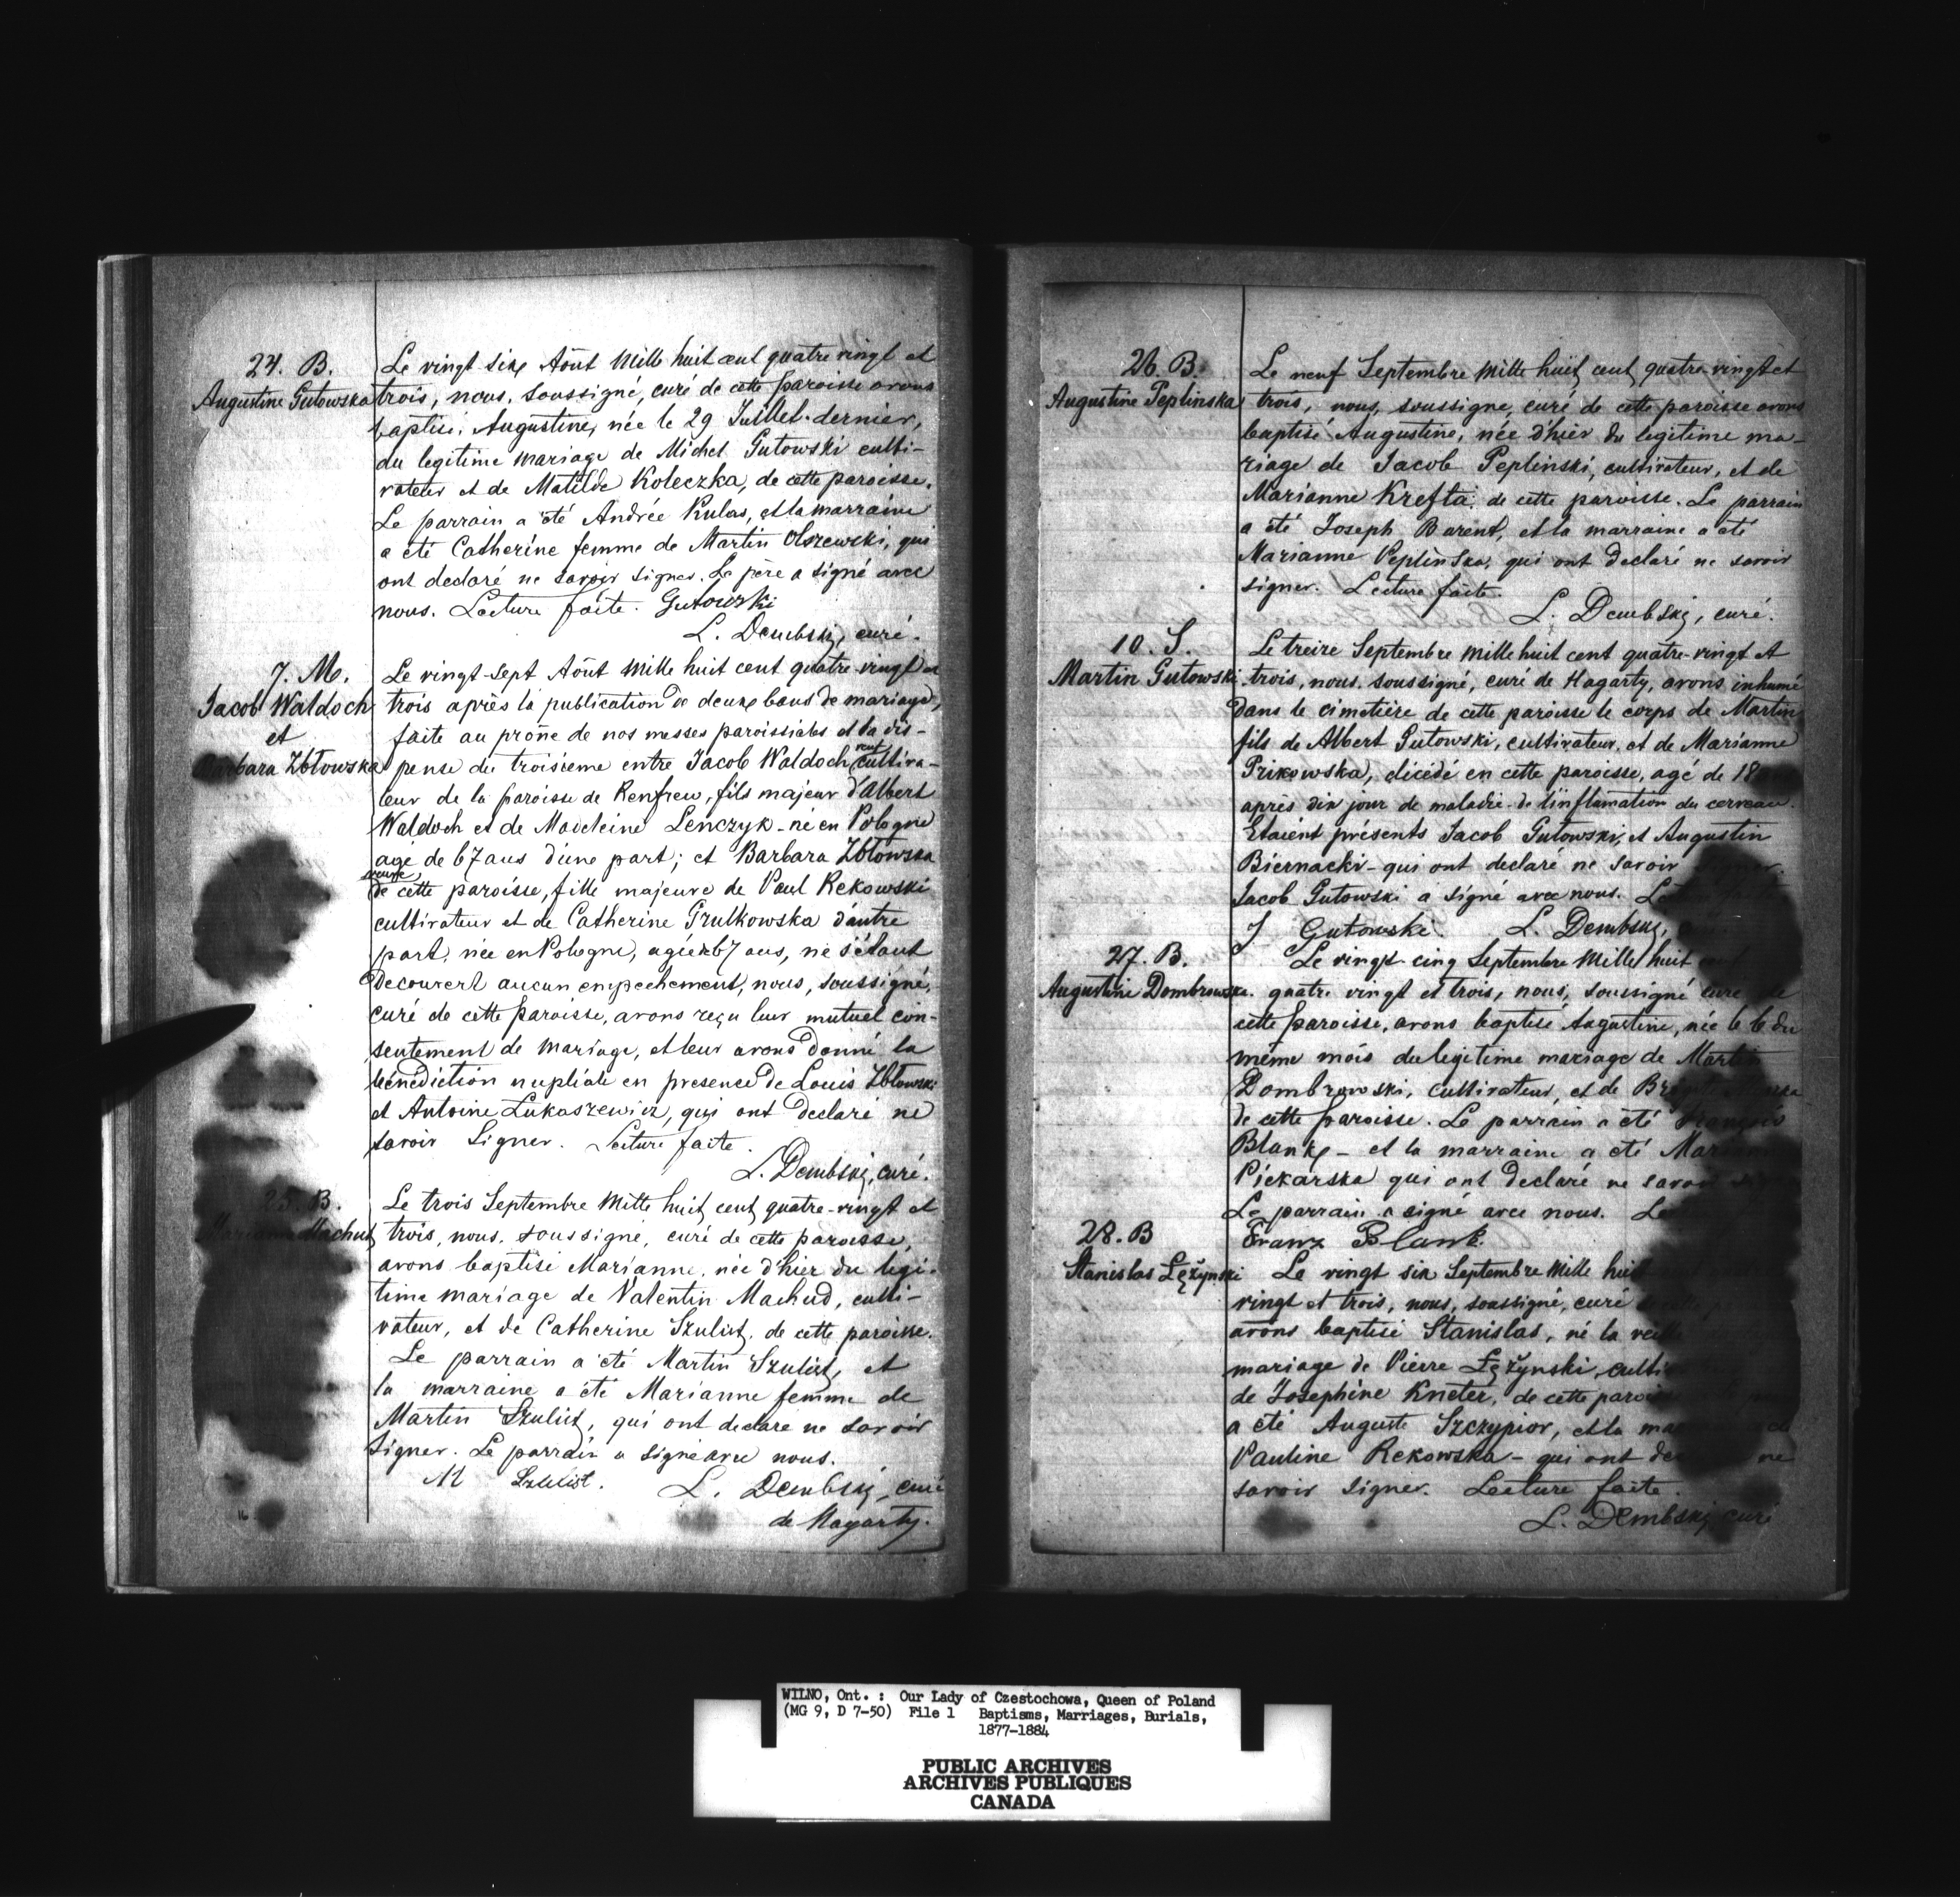 24. B.
Augustine Gutowska
Le vingt six Août mille huit cent quatre vingt et
trois, nous, soussigné, curé de cette paroisse avons
baptisé, Augustine, née le 29 Juillet dernier,
du legitime mariage de Michel Gutowski culti-
vateur et de Matilde Koleczka, de cette paroisse.
Le parrain a été Andrée Kulas, et la marraine
a été Catherine femme de Martin Olszewski, qui
ont declaré ne savoir signer. Le père a signé avec
nous. Lecture faite. Gutowski
L. Dembski, curé.
7. M.
Jacob Waldoch
et
Barbara Zbłowska
Le vingt-sept Août mille huit cent quatre-vingt et
trois après la publication de deux bans de mariage,
faite au prône de nos messes paroissiales et la dis-
pense du troisieme entre Jacob Waldoch veuf cultiva-
teur de la paroisse de Renfrew, fils majeur d'Albert
Waldoch et de Madeleine Lenczyk - né en Pologne
agé de 67 ans d'une part; et Barbara Zbłowska
veuve,
de cette paroisse, fille majeure de Paul Rekowski
cultivateur et de Catherine Grulkowska d'autre
part, née en Pologne, agée de 67 ans, ne s'étant
decouvert aucun empechement, nous, soussigné,
curé de cette paroisse, avons reçu leur mutuel con-
sentement de mariage, et leur avons donné la
bénédiction nuptiale en presence de Louis Zbłowski
et Antoine Lukaszewicz, qui ont declaré ne
savoir signer. Lecture faite.
L. Dembski, curé.
25. B.
Marianne Machud
Le trois Septembre mille huit cent quatre-vingt et
trois, nous, soussigné, curé de cette paroisse,
avons baptisé Marianne, née d'hier du legi-
time mariage de Valentin Machud, culti-
vateur, et de Catherine Szulist, de cette paroisse.
Le parrain a été Martin Szulist, et
la marraine a été Marianne femme de
Martin Szulist, qui ont declare ne savoir
signer. Le parrain a signé avec nous.
M Szulist. L. Dembski, curé
de Hagarty.
16
26. B.
Augustine Peplinska
Le neuf Septembre mille huit cent quatre-vingt et
trois, nous, soussigné, curé de cette paroisse avons
baptisé Augustine, née d'hier du legitime ma-
riage de Jacob Peplinski, cultivateur, et de
Marianne Krefta, de cette paroisse. Le parrain
a été Joseph Barent, et la marraine a été
Marianne Peplinska, qui ont declaré ne savoir
signer. Lecture faite.
L. Dembski, curé.
10. S.
Martin Gutowski
Le treize Septembre mille huit cent quatre-vingt et
trois, nous, soussigné, curé de Hagarty, avons inhumé
dans le cimetière de cette paroisse le corps de Martin
fils de Albert Gutowski, cultivateur, et de Marianne
décédé en cette paroisse, agé de 18
après dix jour de maladie de l'inflamation du cerveau.
Etaient présents Jacob Gutowski, et Augustin
Biernacki - qui ont declaré ne savoir
Jacob Gutowski a signé avec nous.
J Gutowski. L. Dembski,
27. B.
Augustine Dombrowska.
Le vingt-cinq Septembre mille huit
quatre vingt et trois, nous, soussigné curé de
cette paroisse, avons baptisé Augustine, née le 6 du
même mois du legitime mariage de Martin
Dombrowski, cultivateur, et de
de cette paroisse. Le parrain a été François
Blank - et la marraine a été
Piekarska qui ont declaré ne savoir
Le parrain a signé avec nous.
Franz Blank.
28. B
Stanislas Lężynski
Le vingt six Septembre mille huit
vingt et trois, nous, soussigné, curé
avons baptisé Stanislas, né la veille
mariage de Pierre Lężynski,
de Josephine Kneter, de cette
a été Auguste Szczypior, et la
Pauline Rekowska - qui ont ne
savoir signer. Lecture faite.
L. Dembski curé
WILNO, Ont. : Our Lady of Czestochowa, Queen of Poland
(MG 9, D 7-50) File 1 Baptisms, Marriages, Burials,
1877-1884
PUBLIC ARCHIVES
ARCHIVES PUBLIQUES
CANADA